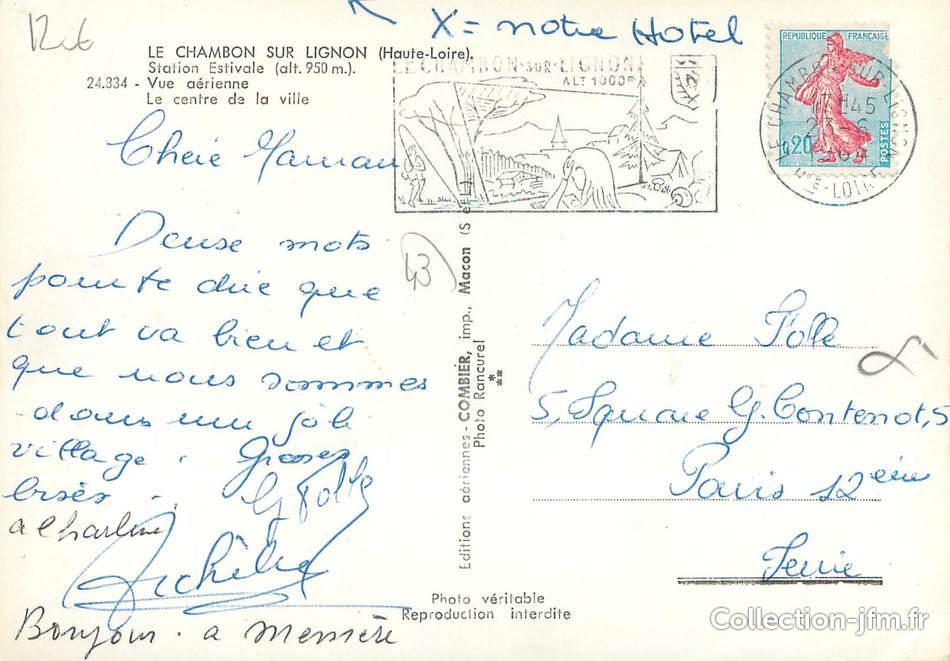 X = notre Hotel
LE CHAMBON SUR LIGNON (Haute-Loire).
Station Estivale (alt. 950 m.).
24.834 - Vue aérienne
Le centre de la ville
LE CHAMBON-SUR-LIGNON
ALT 1000m
REPUBLIQUE FRANÇAISE
0,20
POSTES
LE CHAMBON-SUR-LIGNON
17H45
23-6
HTE-LOIRE
Cheie Maman
Deuse mots
pour te dire que
tout va bien et
que nous sommes
dans un joli
village. Grosses
bises.
a Charline
Bonjour. a Memère
43
Editions aériennes - COMBIER, imp., Macon (S et L)
Photo Rancurel
**
Madame Folle
5, Square G. Contenot, 5
Paris 12ème
Seine
Photo véritable
Reproduction interdite
Collection-jfm.fr